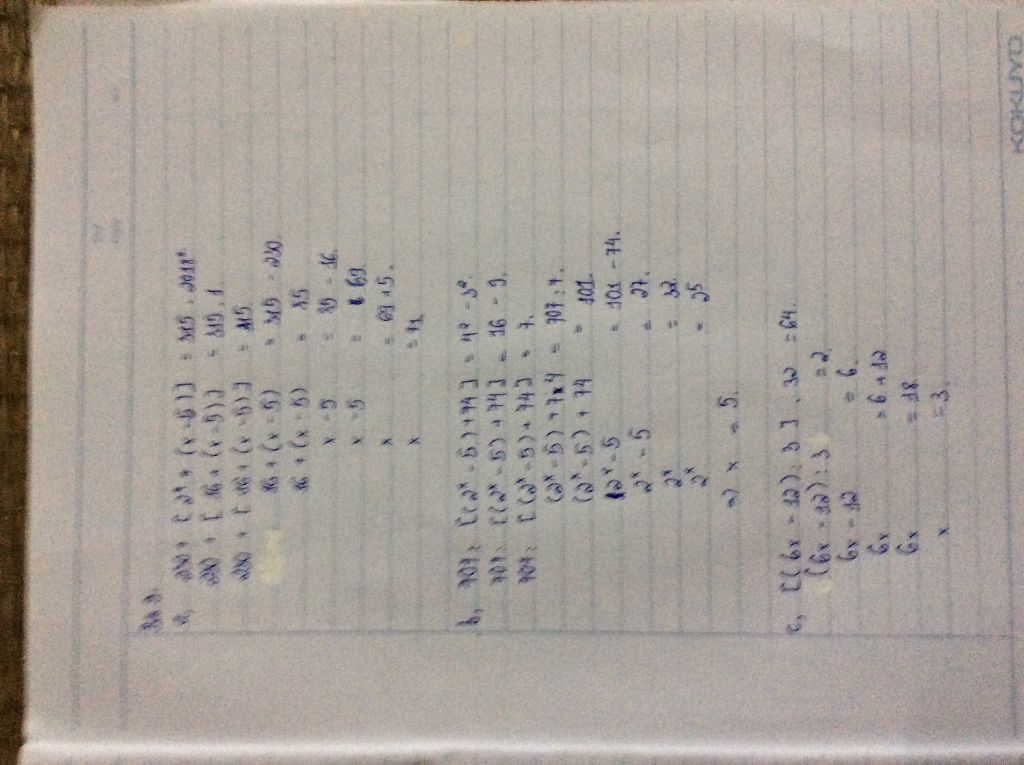 Bài 3.
a, 230 + [ 2⁴ + (x - 5) ] = 315 . 2018⁰
230 + [ 16 + (x - 5) ] = 315 . 1
230 + [ 16 + (x - 5) ] = 315
16 + (x - 5) = 315 - 230
16 + (x - 5) = 85
x - 5 = 85 - 16
x - 5 = 69
x = 69 + 5.
x = 74
b, 707 : [(2ˣ - 5) + 74] = 4² - 3²
707 : [(2ˣ - 5) + 74] = 16 - 9.
707 : [(2ˣ - 5) + 74] = 7.
(2ˣ - 5) + 74 = 707 : 7.
(2ˣ - 5) + 74 = 101
2ˣ - 5 = 101 - 74.
2ˣ - 5 = 27.
2ˣ = 32
2ˣ = 2⁵
=> x = 5.
c, [(6x - 12) : 3] . 32 = 64.
(6x - 12) : 3 = 2.
6x - 12 = 6.
6x = 6 + 12
6x = 18.
x = 3.
KOKUYO